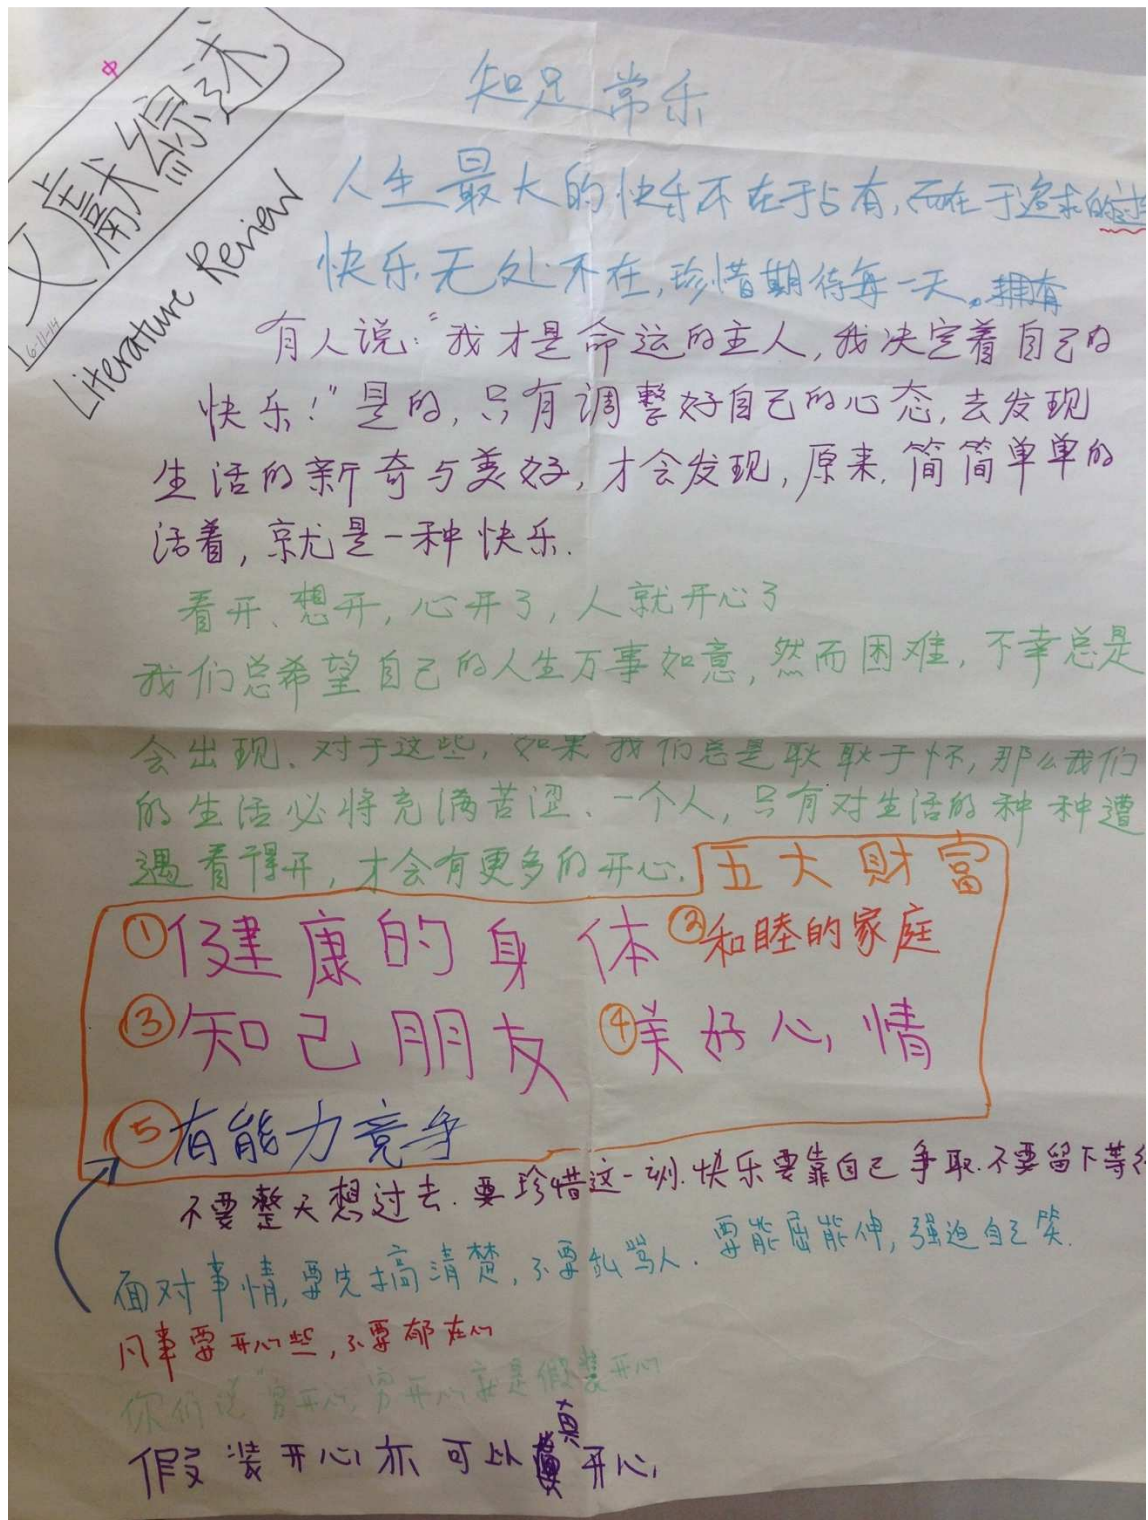 中
文獻綜述
6-11-14
Literature Review
知足常乐
人生最大的快乐不在于占有,而在于追求的过
快乐无处不在,珍惜期待每一天。拥有
有人说:“我才是命运的主人,我决定着自己的
快乐!”是的,只有调整好自己的心态,去发现
生活的新奇与美好,才会发现,原来,简简单单的
活着,就是一种快乐.
看开、想开,心开了,人就开心了
我们总希望自己的人生万事如意,然而困难,不幸总是
会出现、对于这些,如果我们总是耿耿于怀,那么我们
的生活必将充满苦涩、一个人,只有对生活的种种遭
遇看得开,才会有更多的开心.
五大財富
①健康的身体 ②和睦的家庭
③知己朋友 ④美好心情
⑤有能力竞争
不要整天想过去.要珍惜这一刻.快乐要靠自己争取.不要留下等
面对事情,要先搞清楚,不要乱骂人.要能屈能伸,强迫自己笑.
凡事要开心些,不要郁在心
你们说“穷开心,穷开心就是假装开心
假装开心亦可以真开心